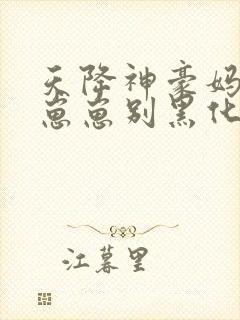 天降神豪妈
崽崽别黑化
江暮里